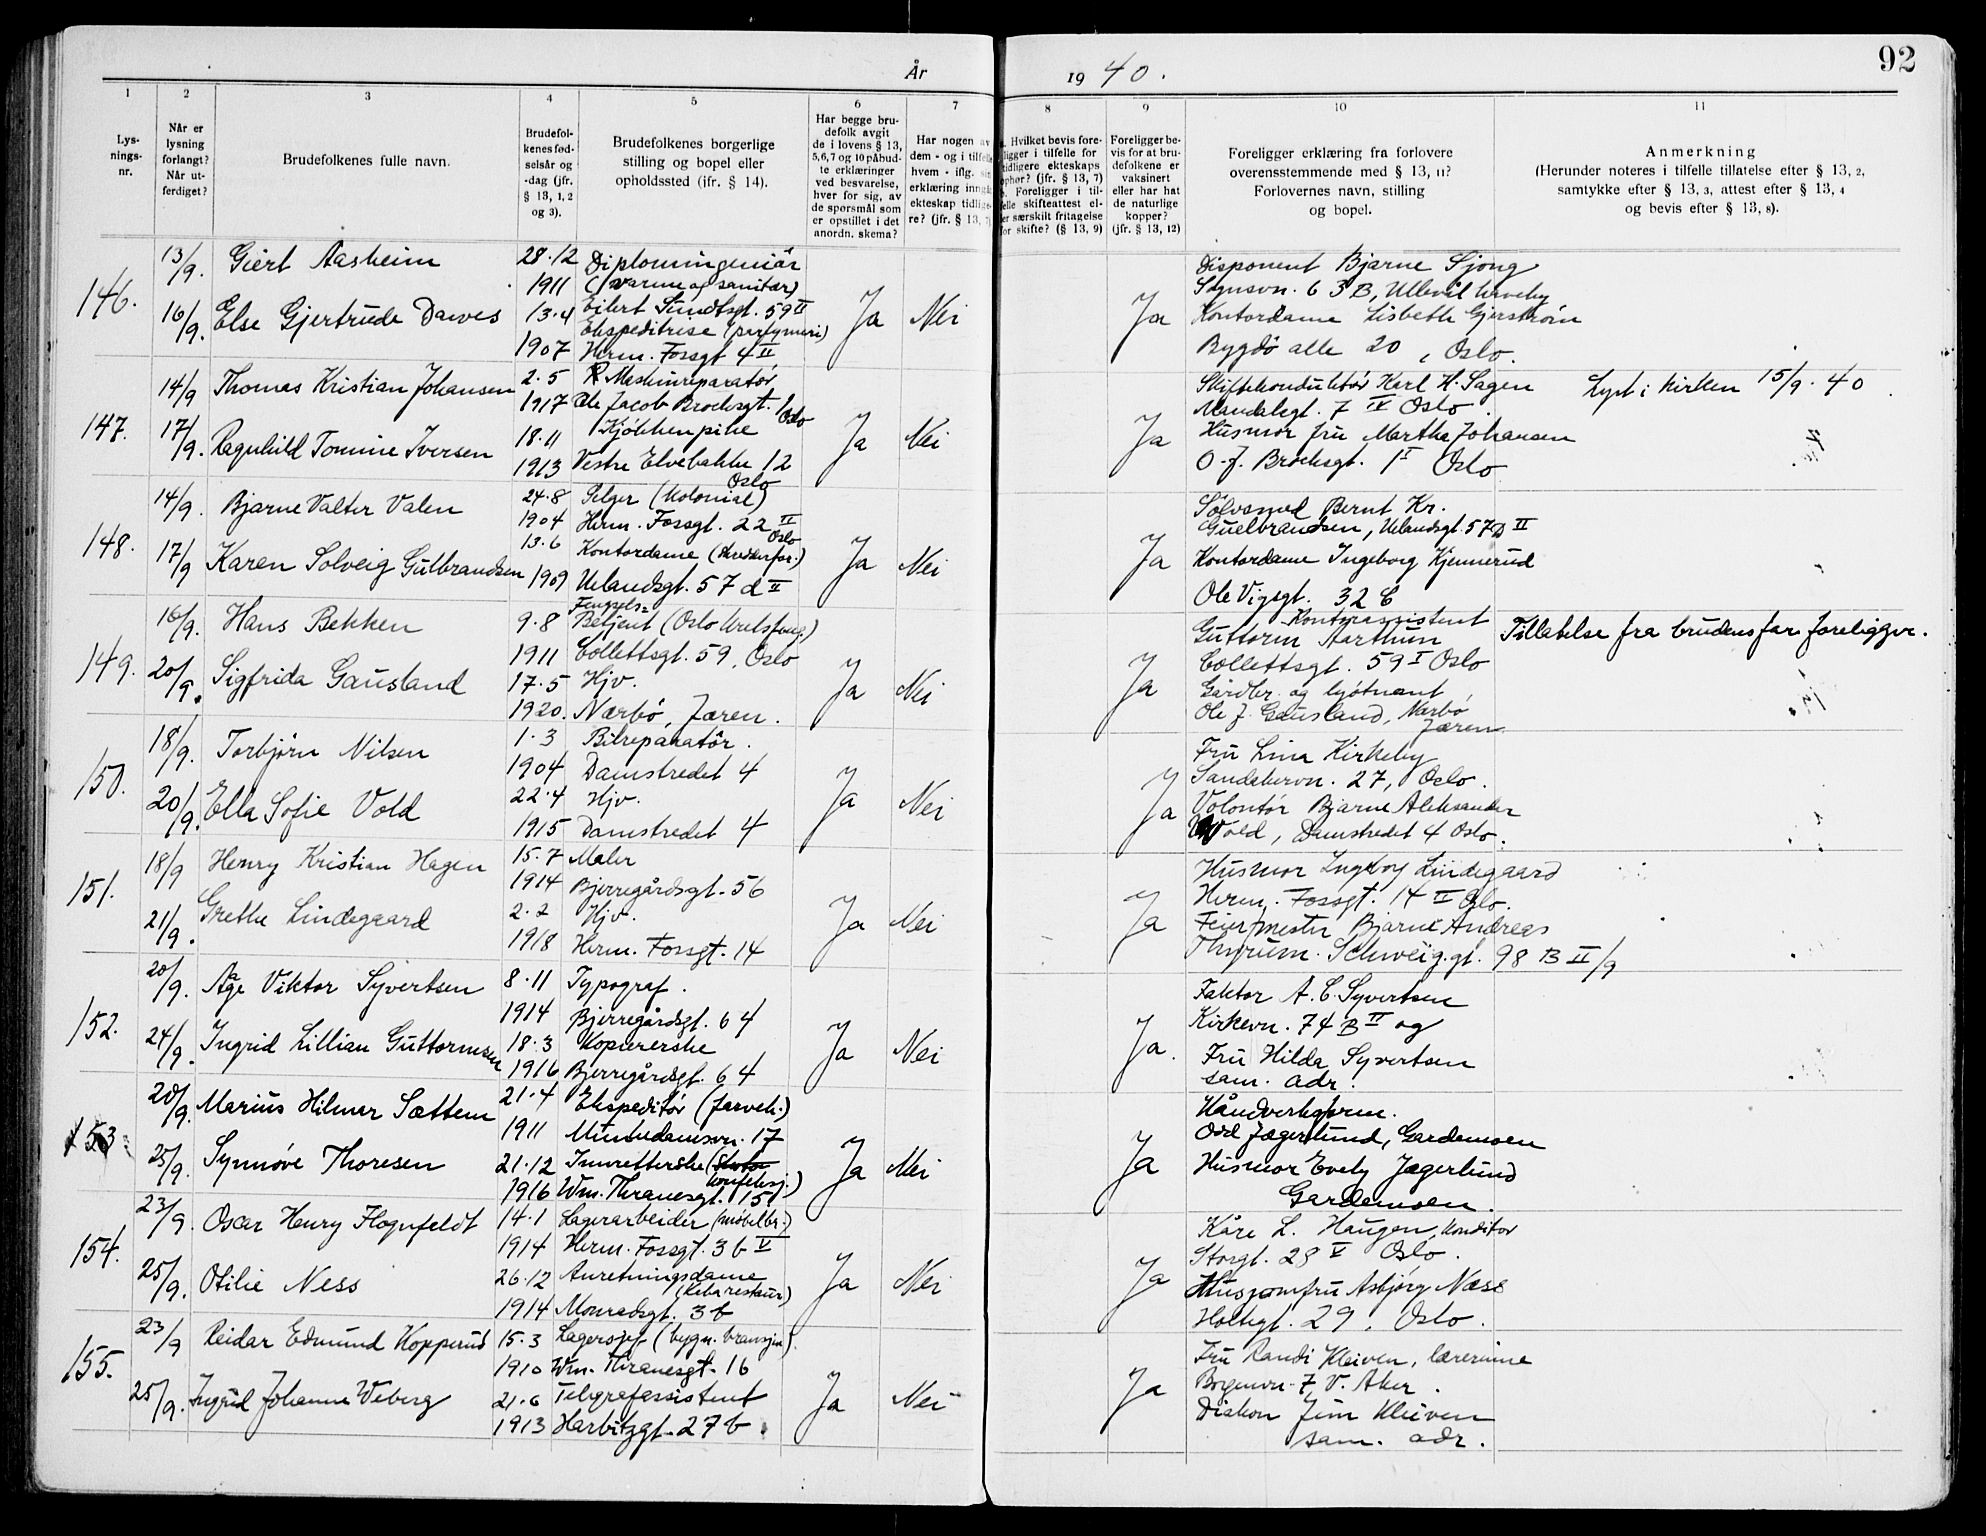 92
År 1940.
1 2 3 4 5 6 7 8 9 10 11
Lys-
nings-
nr.
Når er
lysning
forlangt?
Når ut-
ferdiget?
Brudefolkenes fulle navn.
Brudefol-
kenes fød-
selsår og
-dag (jfr.
§ 13, 1, 2
og 3).
Brudefolkenes borgerlige
stilling og bopel eller
opholdssted (jfr. § 14).
Har begge bru-
defolk avgit
de i lovens § 13,
5,6,7 og 10 påbud-
te erklæringer
ved besvarelse,
hver for sig, av
de spørsmål som
er opstillet i det
anordn. skema?
Har nogen av
dem - og i tilfelle
hvem - iflg. sin
erklæring inngåt
ekteskap tidlige-
re? (jfr. § 13, 7)
Hvilket bevis fore-
ligger i tilfelle for
tidligere ekteskaps
ophør? (jfr. § 13, 7)
Foreligger i til-
felle skifteattest el-
ler særskilt fritagelse
for skifte? (§ 13, 9)
Foreligger be-
vis for at bru-
defolkene er
vaksinert
eller har hat
de naturlige
kopper?
(jfr. § 13, 12)
Foreligger erklæring fra forlovere
overensstemmende med § 13, 11?
Forlovernes navn, stilling
og bopel.
Anmerkning
(Herunder noteres i tilfelle tillatelse efter § 13, 2,
samtykke efter § 13, 3, attest efter § 13, 4
og bevis efter § 13, 8).
146.
13/9. Giert Aasheim 28.12 1911 Diplomingeniør
(varme og sanitær)
Eilert Sundtsgt. 59 II
16/9. Else Gjertrude Dawes 13.4 1907 Ekspeditrise (parfymeri)
Herm. Fossgt 4 II
Ja Nei Ja
Disponent Bjarne Sjong
Sognsvn. 63 B, Ullevål haveby
Kontordame Lisbeth Gjerstrøm
Bygdø alle 20, Oslo.
147.
14/9 Thomas Kristian Johansen 2.5 1917 Maskinreparatør
Ole Jacob Brochsgt. 1 Oslo
17/9. Ragnhild Tomine Iversen 18.11 1913 Kjøkkenpike
Vestre Elvebakke 12
Oslo
Ja Nei Ja
Skiftekonduktør Karl H. Sagen
Mandalsgt. 7 IV Oslo.
Husmor fru Marthe Johansen
O. J. Brochsgt. 1 I Oslo
Lyst i kirken 15/9. 40
148.
14/9. Bjarne Valter Valen 24.8 1904 Selger (kolonial)
Herm. Fossgt. 22 II
Oslo
17/9 Karen Solveig Gulbrandsen 13.6 1909 Kontordame
Uelandsgt. 57 d II
Ja Nei Ja
Sølvsmed Bernt Kr.
Gulbrandsen, Uelandsgt. 57 D II
Kontordame Ingeborg Kjennerud
Ole Vigsgt. 32 C
149.
16/9. Hans Bekken 9.8 1911 Fengsels-
Betjent (Oslo kretsfeng.)
Collettsgt. 59, Oslo
20/9. Sigfrida Gausland 17.5 1920. Hjv.
Nærbø, Jæren.
Ja Nei Ja
Kontorassistent
Guttorm Aarthun
Collettsgt. 59 I Oslo
Gårdbr. og løytnant
Ole J. Gausland, Nærbø
Jæren
Tillatelse fra brudens far foreligger.
150.
18/9. Torbjørn Nilsen 1.3 1904 Bilreparatør.
Damstredet 4
20/9. Ella Sofie Vold 22.4 1915 Hjv.
Damstredet 4
Ja Nei Ja
Fru Lina Kirkeby
Sandakervn. 27, Oslo.
Volontør Bjarne Aleksander
Vold, Damstredet 4 Oslo.
151.
18/9 Henry Kristian Hagen 15.7 1914 Maler
Bjerregårdsgt. 56
21/9. Grethe Lindegaard 2.2 1918 Hjv.
Herm. Fossgt. 14
Ja Nei Ja
Husmor Ingeborg Lindegaard
Herm. Fossgt. 14 II Oslo.
Feiermester Bjarne Andreas
Thyrum. Schweig.gt. 98 B II/9
152.
20/9. Åge Viktor Syvertsen 8.11 1914 Typograf.
Bjerregårdsgt. 64
24/9. Ingrid Lillian Guttormsen 18.3 1916 Kopiererske
Bjerregårdsgt. 64
Ja Nei Ja.
Faktor A. C. Syvertsen
Kirkevn. 74 B IV og
Fru Hilda Syvertsen
sam. adr.
153
20/9. Marius Hilmar Sættem 21.4 1911 Ekspeditør (farveh.)
Munkedamsvn. 17
25/9. Synnøve Thoresen 21.12 1916 Innretterske (
konfeksj.)
Wm. Thranesgt. 15
Ja Nei Ja
Håndverksform.
Odd Jægerlund, Gardemoen
Husmor Evely Jægerlund
Gardemoen.
154.
23/9. Oscar Henry Flognfeldt 14.1 1914 Lagerarbeider (møbelbr.)
Herm. Fossgt. 3 b V
25/9. Otilie Ness 26.12 1914 Anretningsdame
Monradsgt. 3 b
Ja Nei Ja
Kåre L. Haugen, konditor
Storgt. 28 V Oslo.
Husjomfru Asbjørg Næss
Holtegt. 29, Oslo.
155.
23/9 Reidar Edmund Kopperud 15.3 1910 Lagersjef (bygn. bransjen).
Wm. Thranesgt. 16
25/9. Ingrid Johanne Weberg 21.6 1913 Telegrafassistent
Harbitzgt. 27 b.
Ja Nei Ja
Fru Randi Kleiven, lærerinne
Borgenvn. 7, V. Aker.
Diakon Jim Kleiven
sam. adr.